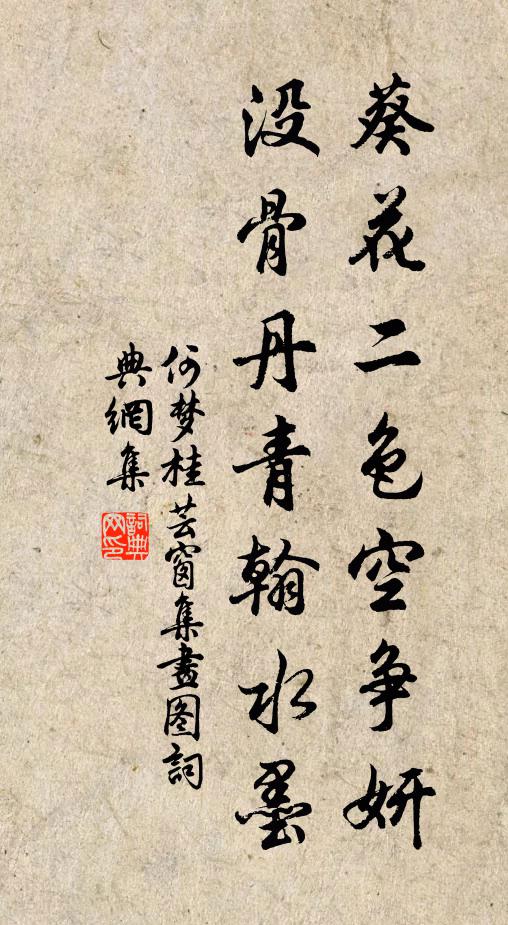 葵花二色空争妍
没骨丹青翰水墨
何梦桂芸窗集畫图詞
典網集
詞典网印